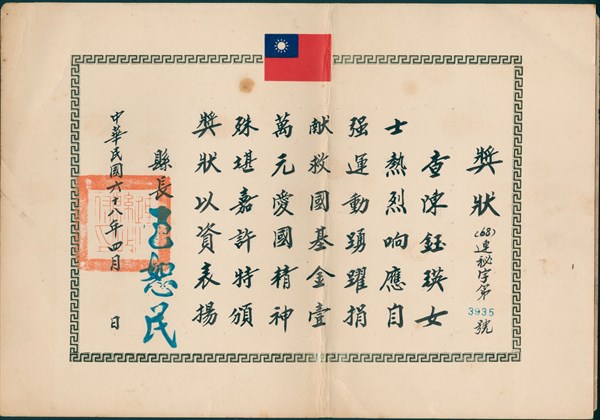 獎狀
(68)連秘字第3935號
查陳鈺瑛女
士熱烈响應自
强運動踴躍捐
献救國基金壹
萬元愛國精神
殊堪嘉許特頒
獎狀以資表揚
縣長王恕民
中華民國六十八年四月 日